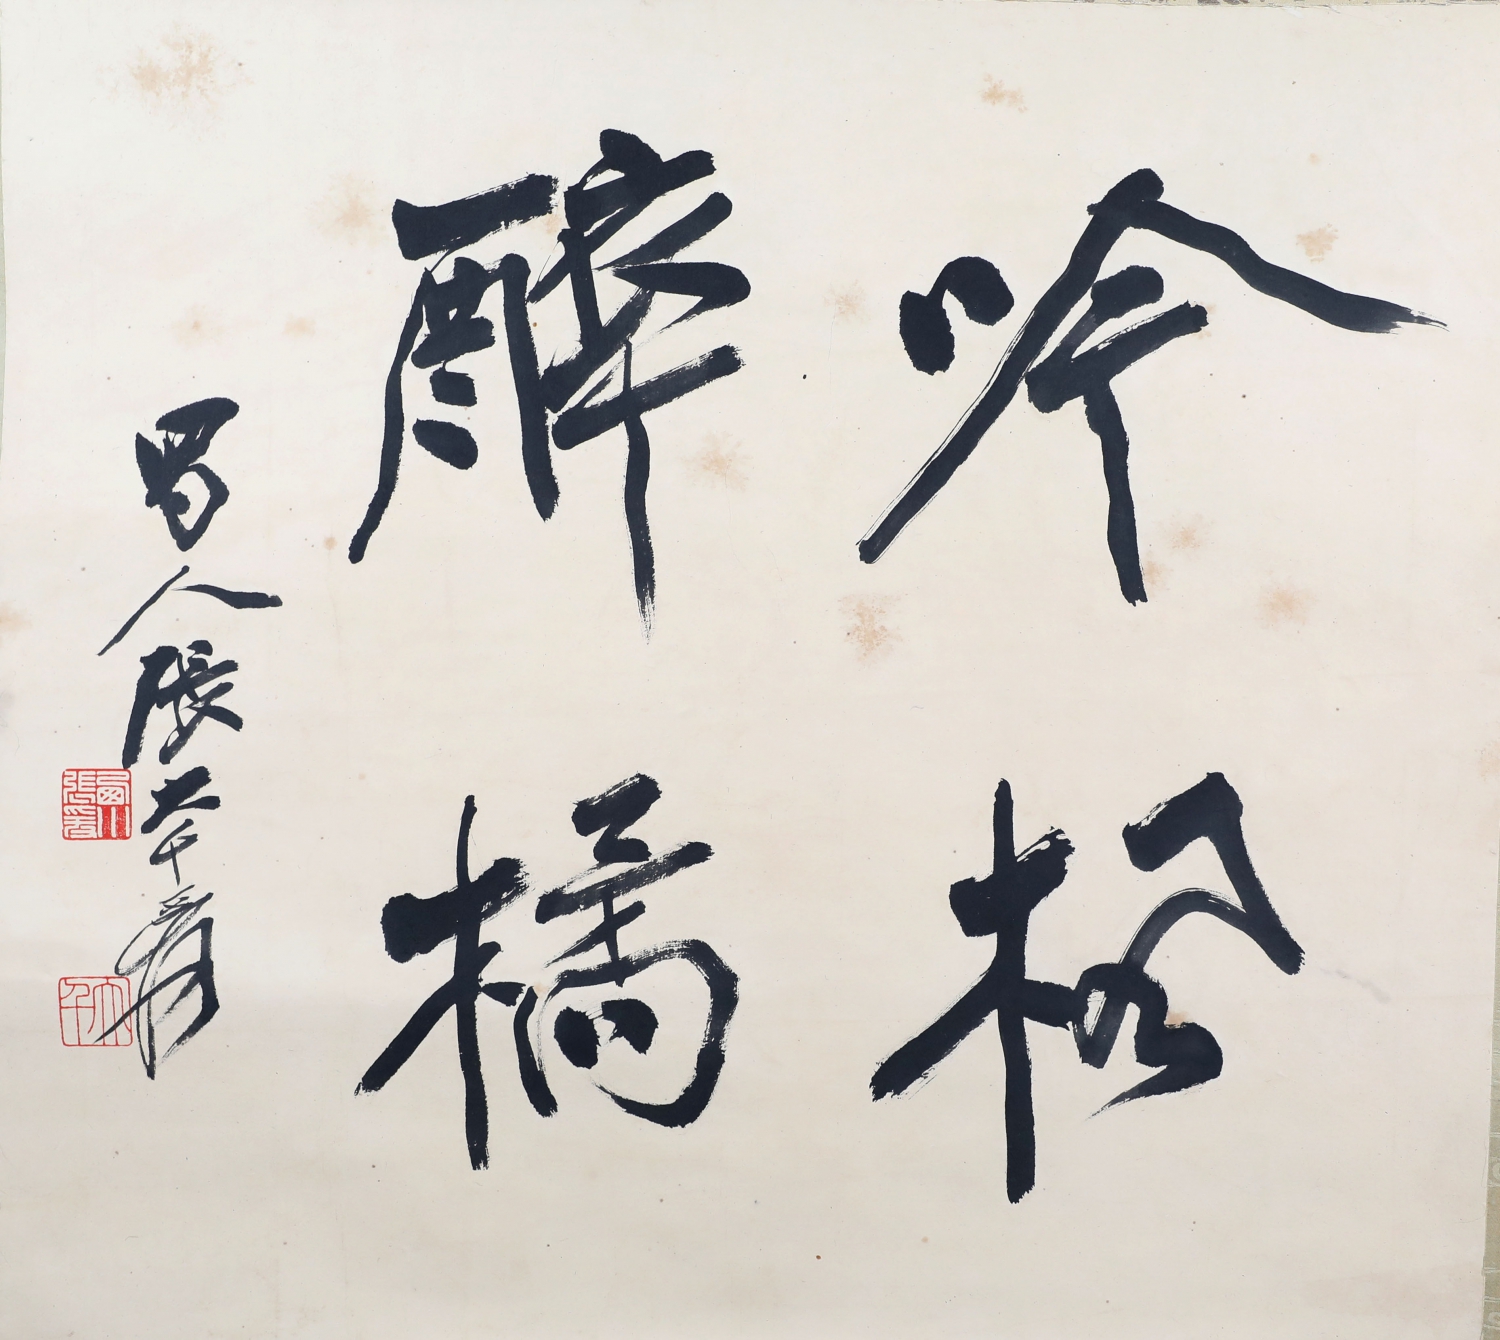 吟松
醉橘
蜀人張大千爰
張爰
大千